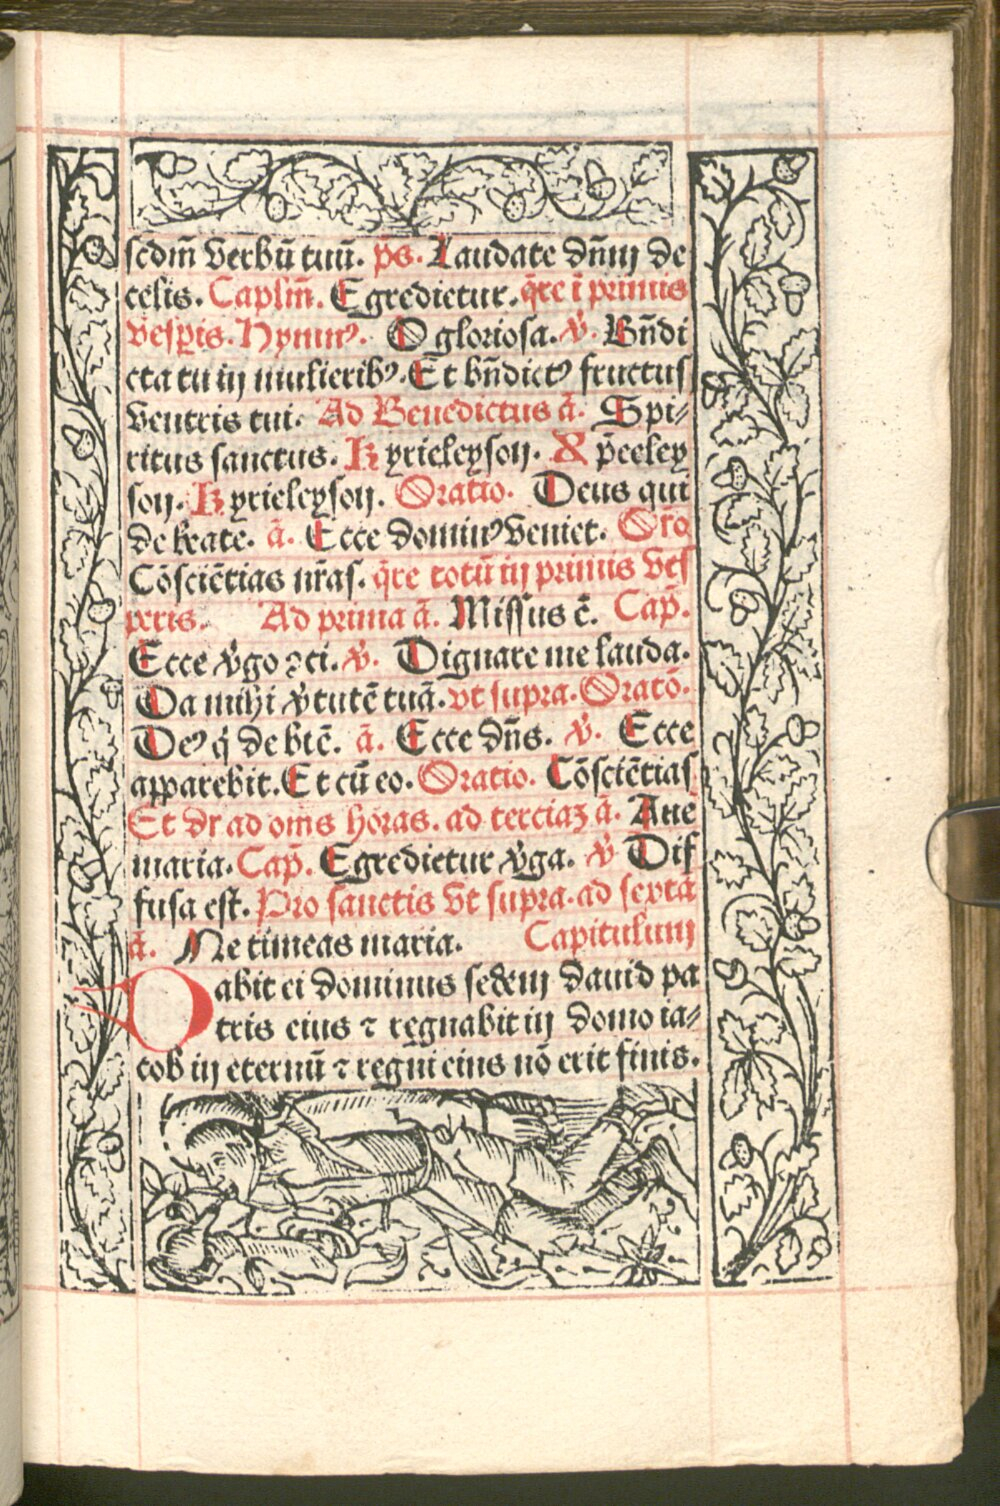 scdm̄ verbū tuū. p̄s. Laudate dn̄m de
celis. Caplm̄. Egredietur. q̄re ī primis
vesp̲is. Hymnꝰ. O gloriosa. v̓. Bn̄di
cta tu in mulieribꝰ. Et bn̄dictꝰ fructus
ventris tui. Ad Benedictus ā. Spi⸗
ritus sanctus. Kyrieleyson. Xp̄eeley
son. Kyrieleyson. Oratio. Deus qui
de beate. ā. Ecce dominꝰ veniet. Or̄o
Cōsciētias nr̄as. q̄re totū in primis ves
peris. Ad prima ā. Missus ē. Cap̄.
Ecce v̓go ꝯci. v̓. Dignare me lauda.
Da mihi v̓tutē tuā. vt supra. Oratō.
Deꝰ q̓ de btē. ā. Ecce dn̄s. v̓. Ecce
apparebit. Et cū eo. Oratio. Cōsciētias
Et dr̄ ad om̄s horas. ad terciaꝫ ā. Aue
maria. Cap̄. Egredietur v̓ga. v̓ Dif
fusa est. Pro sanctis vt supra. ad sextā
ā. Ne timeas maria. Capitulum
Dabit ei dominus sedem dauid pa
tris eius ⁊ regnabit in domo ia⸗
cob in eternū ⁊ regni eius nō erit finis.